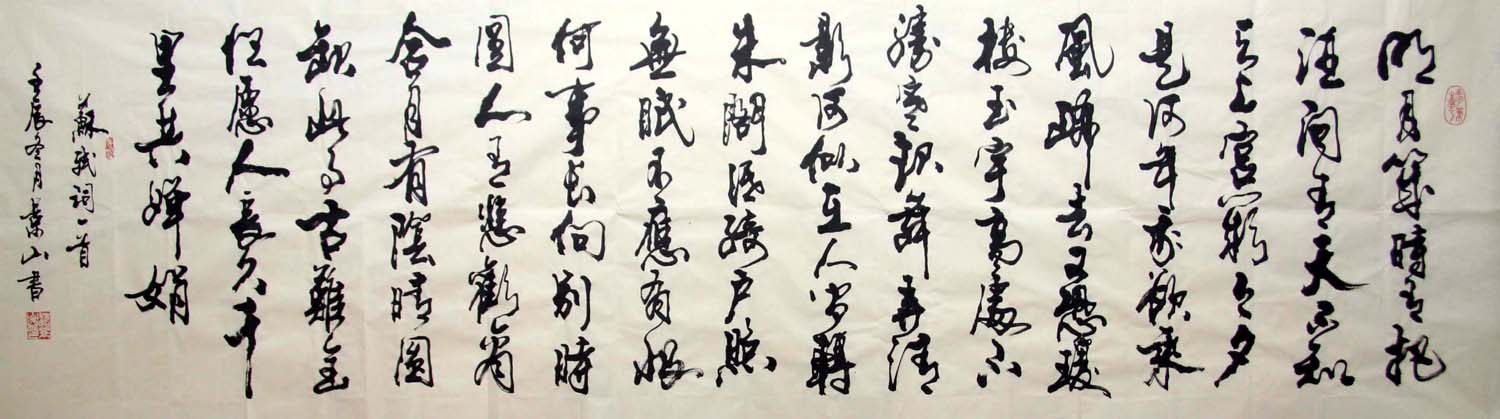 明月幾時有把
酒问青天不知
天上宫闕今夕
是何年我欲乘
風歸去又恐瓊
樓玉宇高處不
勝寒起舞弄清
影何似在人间轉
朱閣低綺户照
無眠不應有恨
何事長向别時
圓人有悲歡离
合月有陰晴圆
缺此事古難全
但愿人長久千
里共嬋娟
蘇軾詞一首
壬辰冬月山書